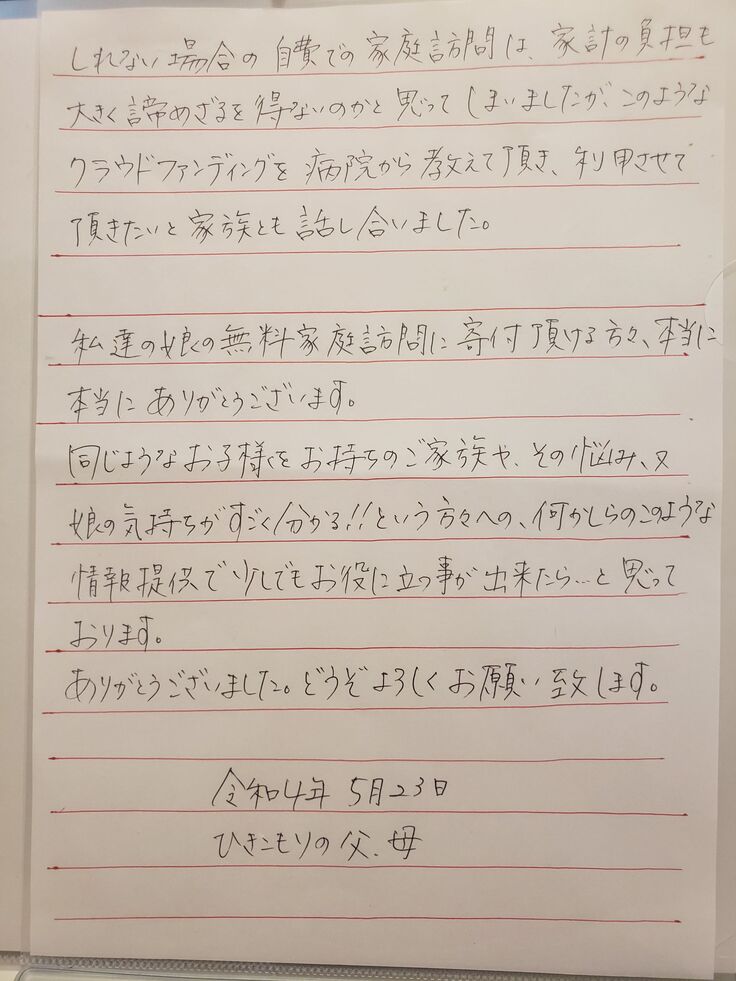 しれない場合の自費での家庭訪問は、家計の負担も
大きく諦めざるを得ないのかと思ってしまいましたが、このような
クラウドファンディングを病院から教えて頂き、利用させて
頂きたいと家族とも話し合いました。
私達の娘の無料家庭訪問に寄付頂ける方々、本当に
本当にありがとうございます。
同じようなお子様をお持ちのご家族や、その悩み、又
娘の気持ちがすごく分かる!!という方々への、何かしらのこのような
情報提供で少しでもお役に立つ事が出来たら…と思って
おります。
ありがとうございました。どうぞよろしくお願い致します。
令和4年 5月23日
ひきこもりの父、母